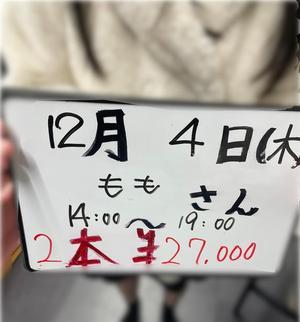 12月 4日(木
もも さん
14:00〜19:00
2本 ¥27.000